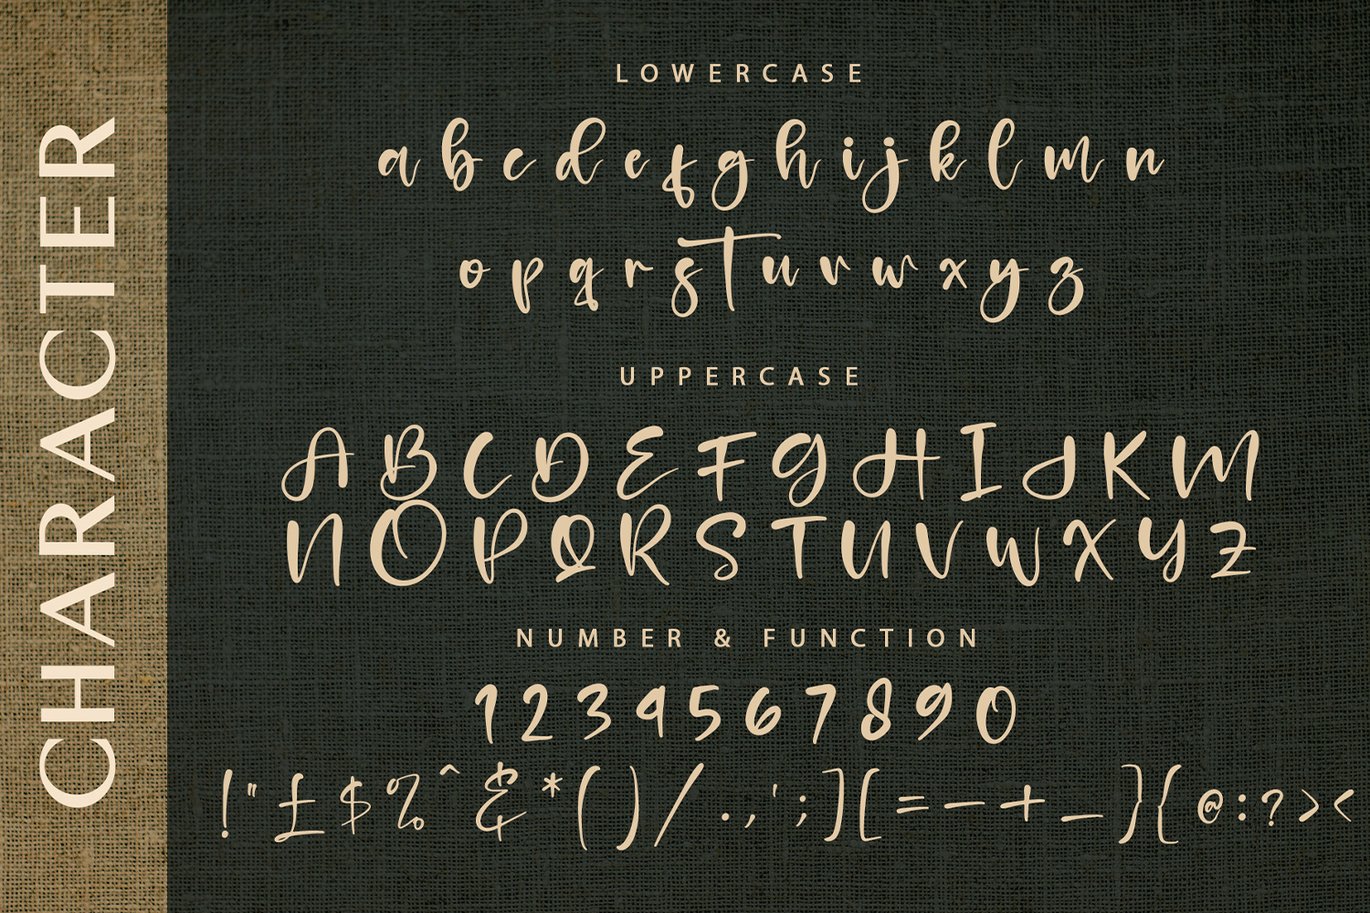 CHARACTER
LOWERCASE
a b c d e f g h i j k l m n
o p q r s t u v w x y z
UPPERCASE
A B C D E F G H I J K M
N O P Q R S T U V W X Y Z
NUMBER & FUNCTION
1 2 3 4 5 6 7 8 9 0
! " £ $ % ^ & * ( ) / . , ' ; ] [ = – + _ } { @ : ? > <